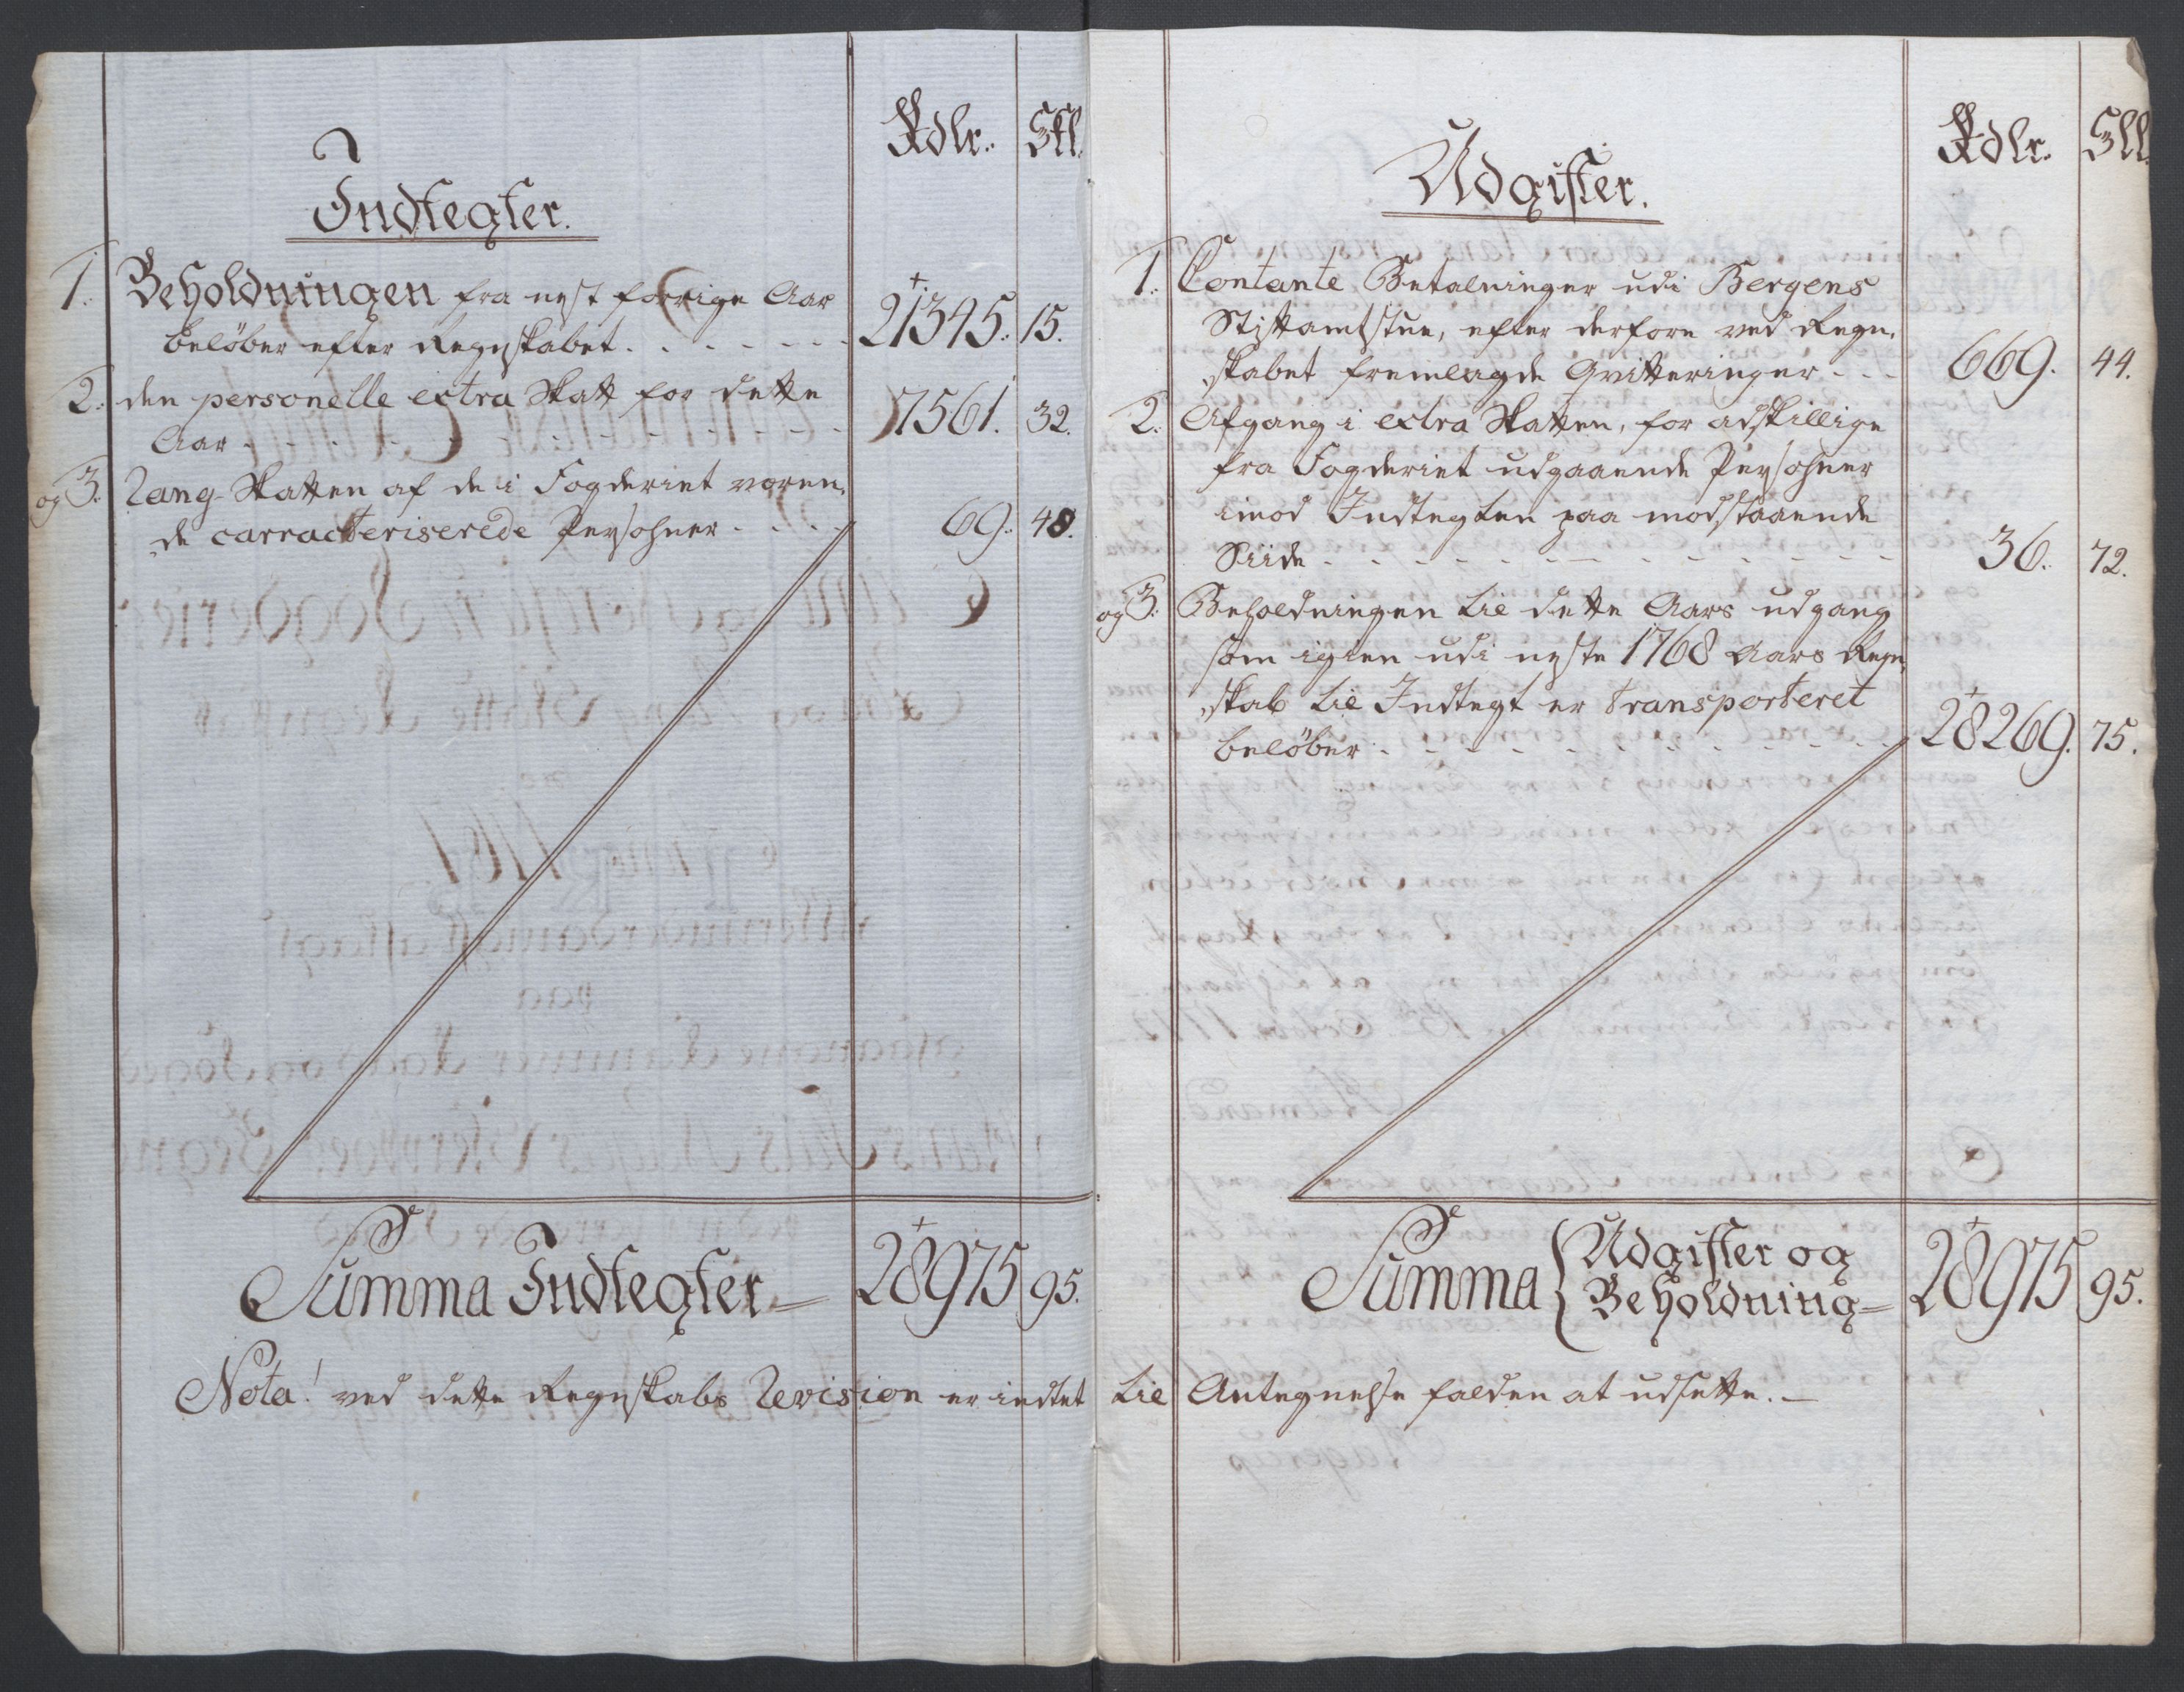 Rdlr. Sk̃l.
Indtegter.
1. Beholdningen fra nest forrige Aar
beløber efter Regnskabet. . . . . . . 21345. 15.
2. den personelle extra Skatt for dette
Aar - - - - - - - - - 7561. 32.
og 3. Rang-Skatten af de i Fogderiet væren,
de carracteriserede Persohner - - - - 69. 48.
Summa Indtegter 28975 95.
Rdlr. Sll.
Udgifter.
1. Contante Betalninger udi Bergens
Stiftamtstue, efter derfore ved Regn,
skabet fremlagde Qvitteringer - - - 669. 44.
2. Afgang i extra Skatten, for adskillige
fra Fogderiet udgaaende Persohner
imod Indtegten paa modstaaende
Siide - - - - - - - - - 36. 72.
og 3. Beholdningen til dette Aars udgang
som igien udi neste 1768 Aars Regn,
skab til Indtegt er transporteret
beløber - - - - - - - - - 28269. 75.
Summa { Udgifter og
Beholdning 28975 95.
Nota! ved dette Regnskabs Revision er indtet til Antegnelse falden at udsette.